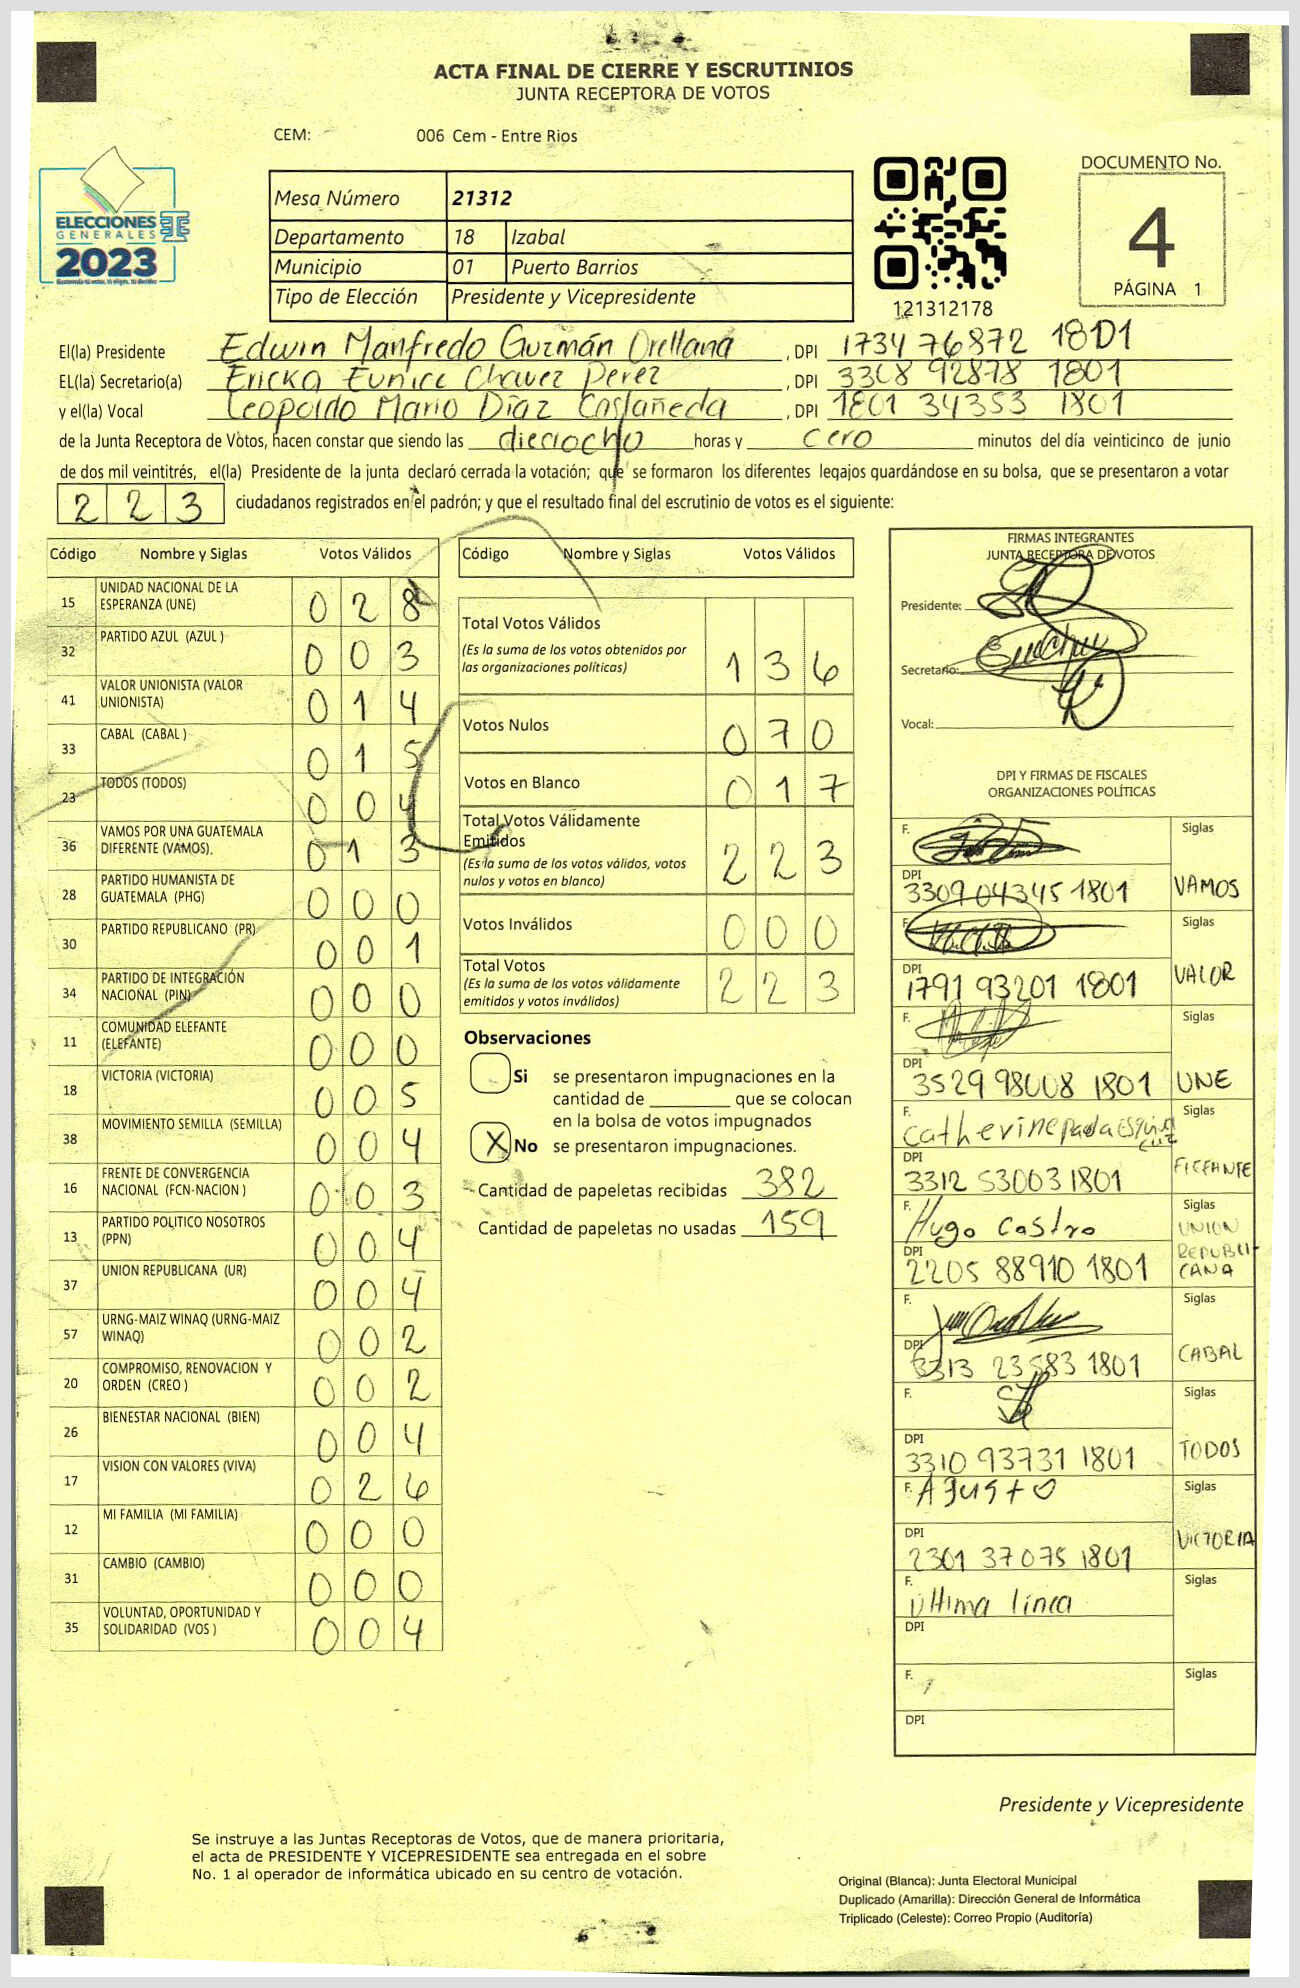 ACTA FINAL DE CIERRE Y ESCRUTINIOS
JUNTA RECEPTORA DE VOTOS
CEM: 006 Cem - Entre Rios
ELECCIONES
GENERALES
2023
Mesa Número 21312
Departamento 18 Izabal
Municipio 01 Puerto Barrios
Tipo de Elección Presidente y Vicepresidente
121312178
DOCUMENTO No.
4
PÁGINA 1
El(la) Presidente Edwin Manfredo Guzmán Orellana , DPI 1734 76872 1801
EL(la) Secretario(a) Ericka Eunice Chavez Perez , DPI 3368 92878 1801
y el(la) Vocal Leopoldo Mario Díaz Castañeda , DPI 1801 34353 1801
de la Junta Receptora de Votos, hacen constar que siendo las dieciocho horas y cero minutos del día veinticinco de junio
de dos mil veintitrés, el(la) Presidente de la junta declaró cerrada la votación; que se formaron los diferentes legajos quardándose en su bolsa, que se presentaron a votar
223 ciudadanos registrados en el padrón; y que el resultado final del escrutinio de votos es el siguiente:
Código Nombre y Siglas Votos Válidos
15 UNIDAD NACIONAL DE LA
ESPERANZA (UNE) 028
32 PARTIDO AZUL (AZUL ) 003
41 VALOR UNIONISTA (VALOR
UNIONISTA) 014
33 CABAL (CABAL ) 015
23 TODOS (TODOS) 004
36 VAMOS POR UNA GUATEMALA
DIFERENTE (VAMOS) 013
28 PARTIDO HUMANISTA DE
GUATEMALA (PHG) 000
30 PARTIDO REPUBLICANO (PR) 001
34 PARTIDO DE INTEGRACIÓN
NACIONAL (PIN) 000
11 COMUNIDAD ELEFANTE
(ELEFANTE) 000
18 VICTORIA (VICTORIA) 005
38 MOVIMIENTO SEMILLA (SEMILLA) 004
16 FRENTE DE CONVERGENCIA
NACIONAL (FCN-NACION ) 003
13 PARTIDO POLITICO NOSOTROS
(PPN) 004
37 UNION REPUBLICANA (UR) 004
57 URNG-MAIZ WINAQ (URNG-MAIZ
WINAQ) 002
20 COMPROMISO, RENOVACION Y
ORDEN (CREO ) 002
26 BIENESTAR NACIONAL (BIEN) 004
17 VISION CON VALORES (VIVA) 026
12 MI FAMILIA (MI FAMILIA) 000
31 CAMBIO (CAMBIO) 000
35 VOLUNTAD, OPORTUNIDAD Y
SOLIDARIDAD (VOS ) 004
Código Nombre y Siglas Votos Válidos
Total Votos Válidos
(Es la suma de los votos obtenidos por
las organizaciones políticas) 136
Votos Nulos 070
Votos en Blanco 017
Total Votos Válidamente
Emitidos
(Es la suma de los votos válidos, votos
nulos y votos en blanco) 223
Votos Inválidos 000
Total Votos
(Es la suma de los votos válidamente
emitidos y votos inválidos) 223
Observaciones
Si se presentaron impugnaciones en la
cantidad de ________ que se colocan
en la bolsa de votos impugnados
X No se presentaron impugnaciones.
Cantidad de papeletas recibidas 382
Cantidad de papeletas no usadas 159
FIRMAS INTEGRANTES
JUNTA RECEPTORA DE VOTOS
Presidente:
Secretario:
Vocal:
DPI Y FIRMAS DE FISCALES
ORGANIZACIONES POLÍTICAS
F. Siglas
DPI
3309 04345 1801 VAMOS
F. Siglas
DPI
1791 93201 1801 VALOR
F. Siglas
DPI
3529 98008 1801 UNE
F. Catherine Siglas
DPI
3312 53003 1801
F. Hugo Castro Siglas
UNION
REPUBLI-
CANA
DPI
2205 88910 1801
F. Siglas
DPI
3313 23583 1801 CABAL
F. Siglas
DPI
3310 93731 1801 TODOS
F. Siglas
DPI
2301 37075 1801 VICTORIA
F. Siglas
Última línea
DPI
F. Siglas
DPI
Presidente y Vicepresidente
Se instruye a las Juntas Receptoras de Votos, que de manera prioritaria,
el acta de PRESIDENTE Y VICEPRESIDENTE sea entregada en el sobre
No. 1 al operador de informática ubicado en su centro de votación.
Original (Blanca): Junta Electoral Municipal
Duplicado (Amarilla): Dirección General de Informática
Triplicado (Celeste): Correo Propio (Auditoría)